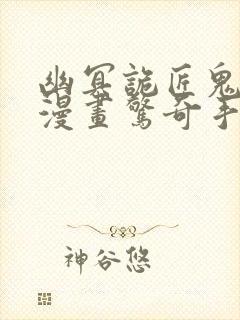 幽冥詭匠鬼
漫畫驚奇手
神谷悠